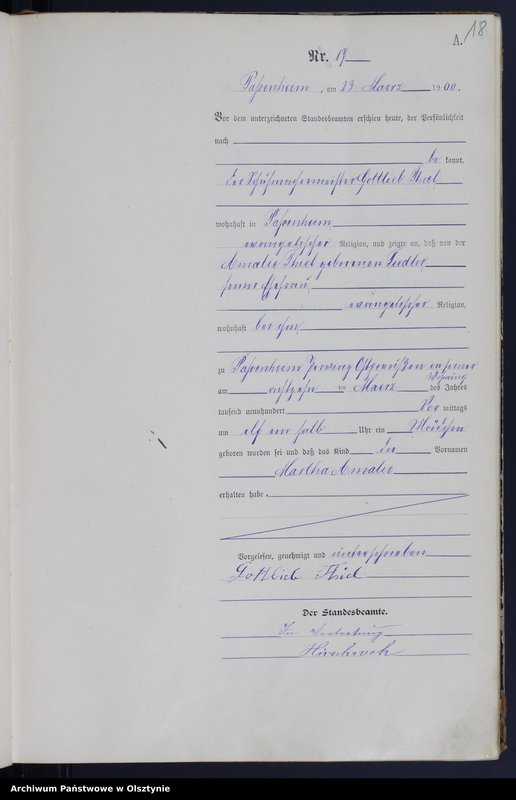 A. 18
Nr. 19
Passenheim, am 23 Maerz 1900.
Vor dem unterzeichneten Standesbeamten erschien heute, der Persönlichkeit
nach
be kannt,
der Schuhmachermeister Gottlieb Thiel
wohnhaft in Passenheim,
evangelischer Religion, und zeigte an, daß von der
Amalie Thiel geborenen Fiedler,
seiner Ehefrau,
evangelischer Religion,
wohnhaft bei ihm,
zu Passenheim Provinz Ostpreußen in seiner
Wohnung
am achtzehn ten Maerz des Jahres
tausend neunhundert Vor mittags
um elf ein halb Uhr ein Mädchen
geboren worden sei und daß das Kind den Vornamen
Martha Amalie
erhalten habe.
Vorgelesen, genehmigt und unterschrieben
Gottlieb Thiel
Der Standesbeamte.
In Vertretung
Archiwum Państwowe w Olsztynie